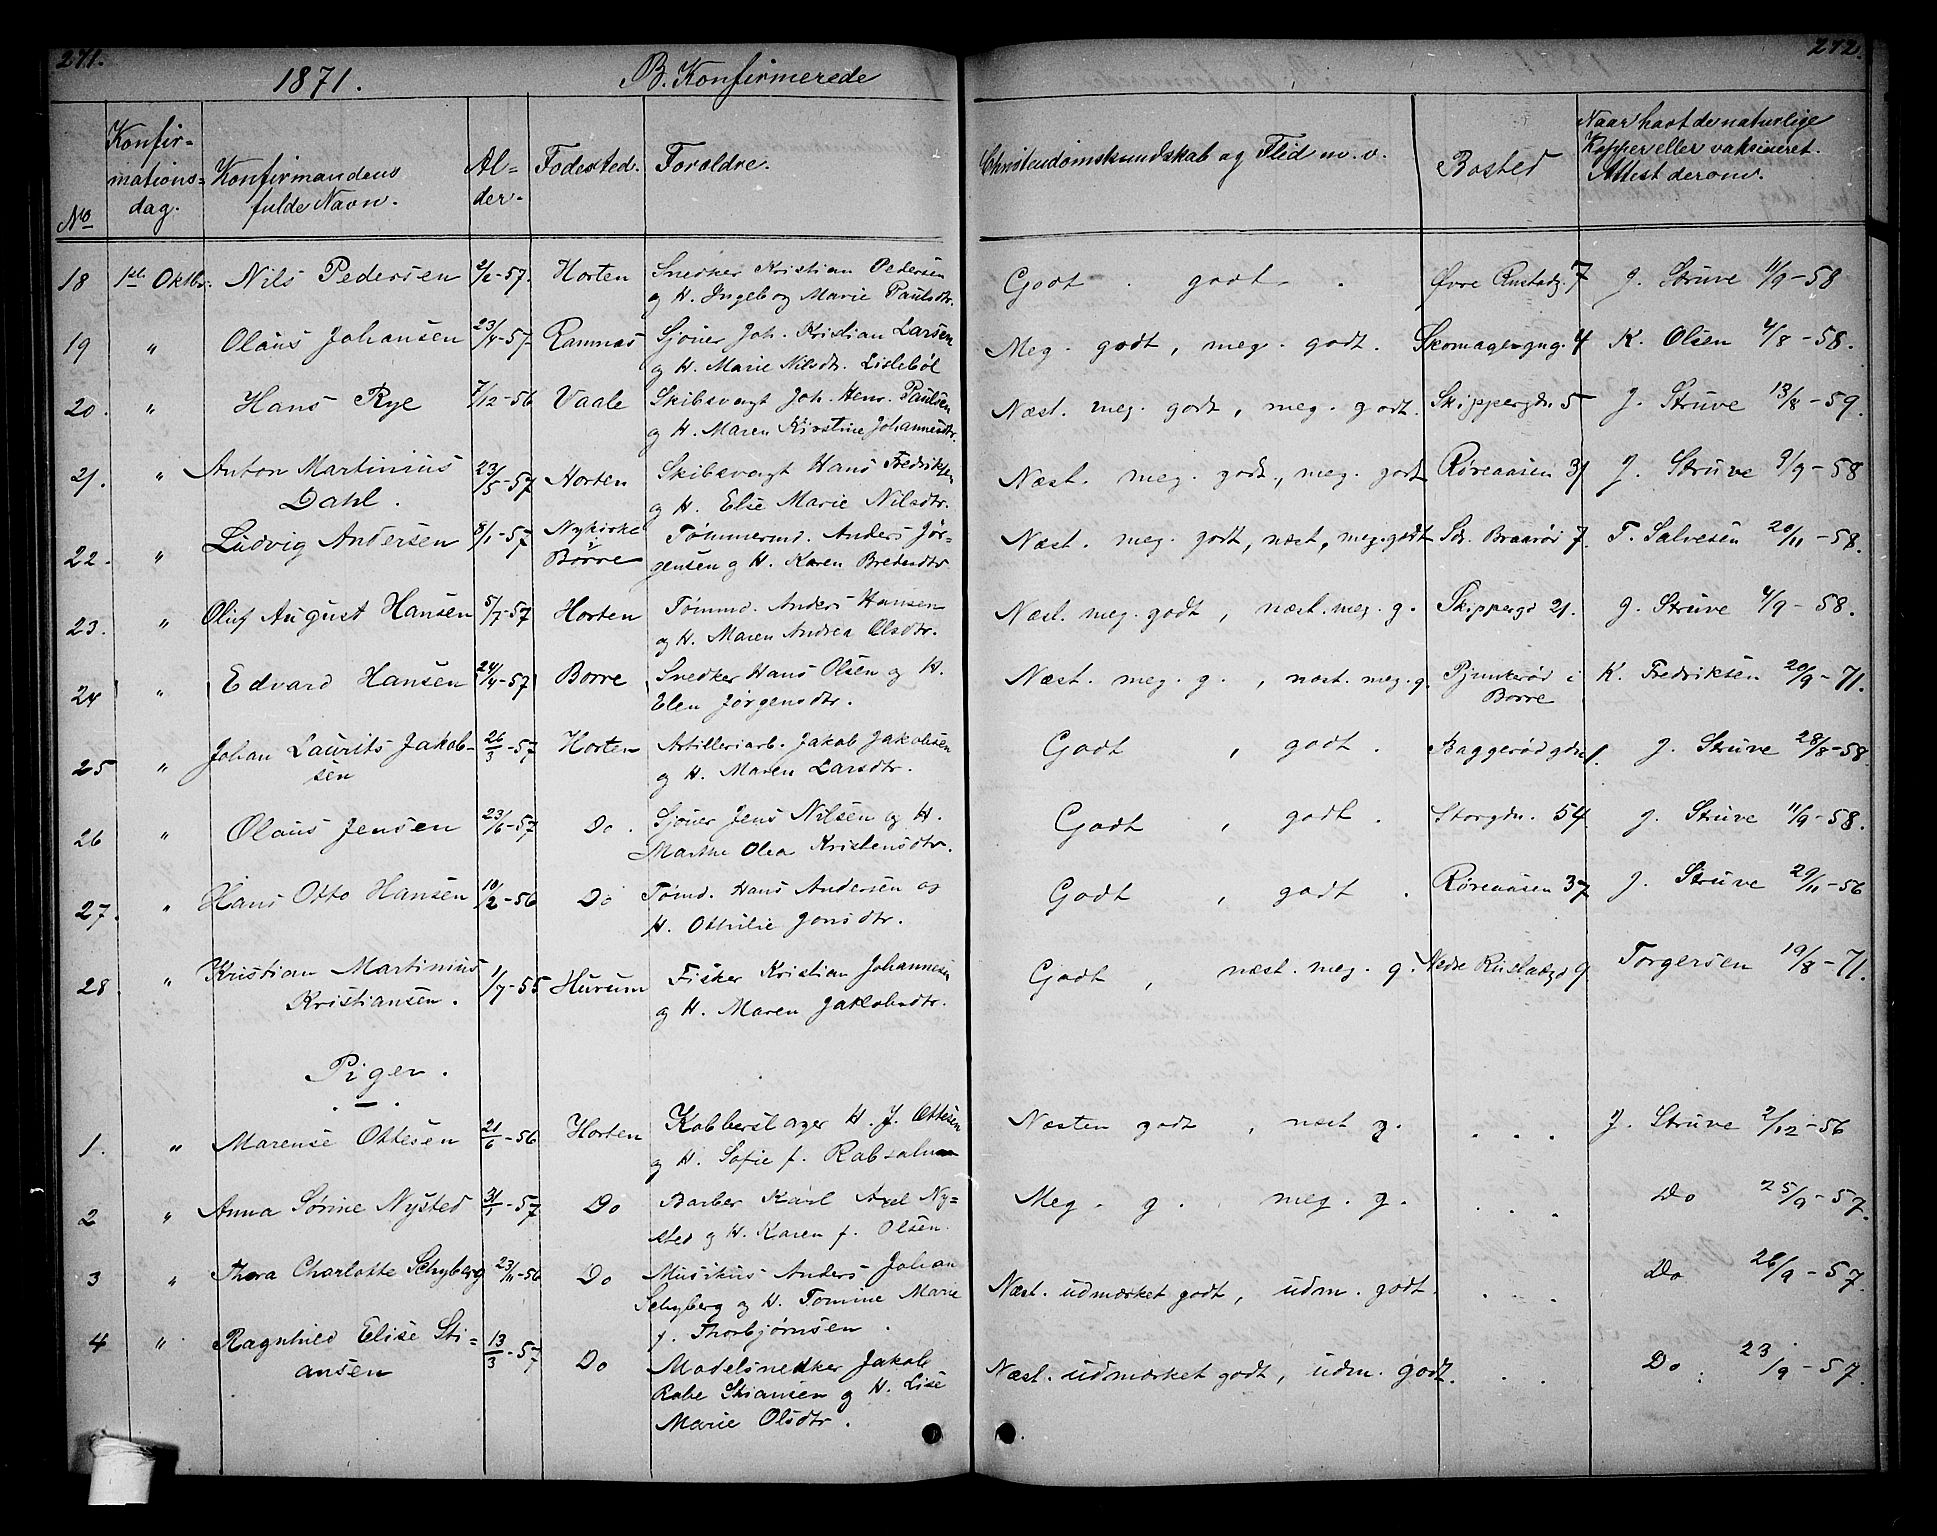 271.
1871.
B. Konfirmerede
No
Konfir-
mations-
dag.
Konfirmandens
fulde Navn.
Al-
der.
Fodested.
Foraldre.
18 1ste Oktbr. Nils Pedersen -57. Horten Snedker Kristian Pedersen
og H. Ingeborg Marie Paulsdtr.
19 " Olaus Johansen 23/4-57 Ramnæs Sjöuer Joh. Kristian Larsen
og H. Marie Nilsdtr. Lislebøl
20. " Hans Rye 7/12-56 Vaale Skibsvagt Joh. Henr. Paulsen
og H. Maren Kirstine Johannesdtr.
21. " Anton Martinius 23/5-57 Horten Skibsvagt Hans Fredriksen
Dahl. og H. Else Marie Nilsdtr.
22. " Ludvig Andersen 8/1-57 Nykirke i Tømmermd. Anders Jör-
Börre gensen og H. Karen
23. " Oluf August Hansen 5/7-57 Horten Tömmd. Anders Hansen
og H. Maren Andrea Olsdtr.
24 " Edvard Hansen 24/4-57 Borre Snedker Hans Olsen og H.
Elen Jørgensdtr.
25 " Johan Laurits Jakob- 26/3-57 Horten Artilleriarb. Jakob Jakobsen
sen og H. Maren Larsdtr.
26 " Olaus Jensen 23/6-57 Do. Sjöuer Jens Nilsen og H.
Marthe Olea Kristensdtr.
27. " Hans Otto Hansen 10/2-56 Do Tømd. Hans Andersen og
H. Othilie Jonsdtr.
28. " Kristian Martinius 1/7-55 Hurum Fisker Kristian Johannesen
Kristiansen. og H. Maren Jakobsdtr.
Piger.
1. " Marense Ottesen 21/6-56 Horten Kobberslager H. J. Ottesen
og H. Sofie f. Rabsahm
2 " Anna Sørine Nysted 31/1-57 Do Barber Karl Axel Ny-
sted og H. Karen f. Olsen.
3 " Thora Charlotte Schyberg 23/11-56 Do Musikus Anders Johan
Schyberg og H. Tomine Marie
f. Thorbjørnsen.
4 " Ragnhild Elise Sti- 13/3-57 Do Modelsnedker Jakob
ansen Rabe Stiansen og H. Lise
Marie Olsdtr.
272.
Christendomskundskab og Flid m. v.
Bosted
Naar havt de naturlige
Kopper eller vaksineret.
Attest derom.
Godt . godt. Øvre Rustadg. 7 J. Struve 11/9-58
Meg. godt, meg. godt. Skomagergg. 4 K. Olsen 4/8-58.
Næst. meg. godt, meg. godt. Skippergdn. 5 J. Struve 13/8-59.
Næst. meg. godt, meg. godt Røreaasen 31 J. Struve 9/9-58
Næst. meg. godt, næst. meg. godt Sdr. Braarød 7. T. Salvesen 20/11-58.
Næst. meg. godt, næst. meg. g. Skippergd 21. J. Struve 4/9-58.
Næst. meg. g., næst. meg. g. i K. Fredriksen 20/9-71.
Borre
Godt, godt. Baggerødgdn 1. J. Struve 28/8-58
Godt, godt. Storgdn. 54 J. Struve 11/9-58.
Godt, godt. Røreaasen 37 J. Struve 29/11-56
Godt, næst. meg. g. Nedre Rustadgd 9 Torgersen 19/8-71.
Næsten godt, næst g. . . . J. Struve 2/12-56
Meg. g. meg. g. . . . Do 25/9-57.
Næst. udmærket godt, udm. godt. . . . Do 26/9-57.
Næst. udmærket godt, udm. godt. . . . Do. 23/9-57.